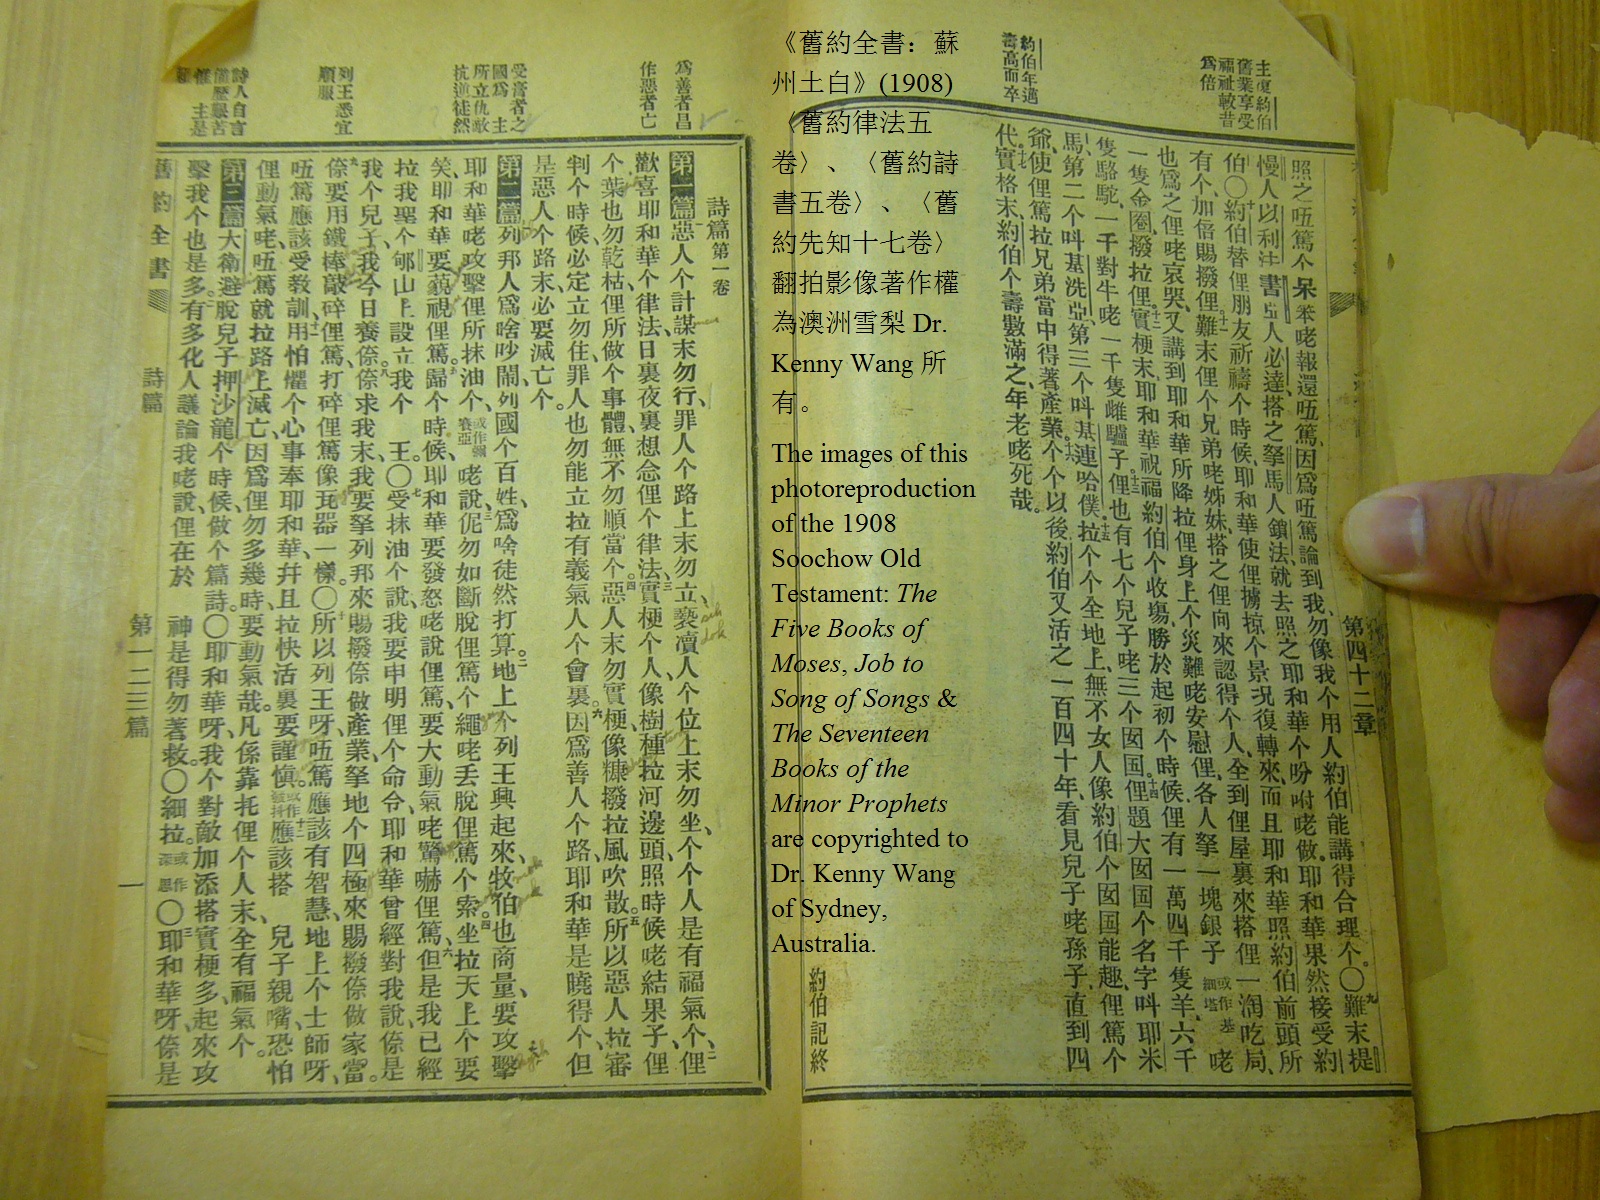 主復約伯
舊業享受
福祉較昔
爲倍
約伯年邁
壽高而卒
第四十二章
照之㕶篤个呆笨咾報還㕶篤、因爲㕶篤論到我、勿像我个用人約伯能講得合理个。○九難末提
慢人以利法書亞人必達搭之拏馬人鎖法、就去照之耶和華个吩咐咾做、耶和華果然接受約
伯○十約伯替俚朋友祈禱个時候、耶和華使俚擄掠个景况復轉來、而且耶和華照約伯前頭所
有个、加倍賜撥俚、十一難末俚个兄弟咾姊妹、搭之俚向來認得个人、全到俚屋裏來、搭俚一淘吃局、
也爲之俚咾哀哭、又講到耶和華所降拉俚身上个災難咾安慰俚、各人拏一塊銀子或作基細塔咾
一隻金圈、撥拉俚、十二實梗末、耶和華祝福約伯个收塲、勝於起初个時候、俚有一萬四千隻羊、六千
隻駱駝、一千對牛咾一千隻雌驢子。十三俚也有七个兒子咾三个囡囯。十四俚題大囡囯个名字呌耶米
馬、第二个呌基洗亞、第三个呌基連哈僕。十五拉个个全地上、無不女人像約伯个囡囯能趣、俚篤个
爺、使俚篤拉兄弟當中得著產業。十六个个以後、約伯又活之一百四十年、看見兒子咾孫子、直到四
代。十七實格末、約伯个壽數滿之、年老咾死哉。
約伯記終
《舊約全書：蘇
州土白》(1908)
〈舊約律法五
卷〉、〈舊約詩
書五卷〉、〈舊
約先知十七卷〉
翻拍影像著作權
為澳洲雪梨 Dr.
Kenny Wang 所
有。
The images of this
photoreproduction
of the 1908
Soochow Old
Testament: The
Five Books of
Moses, Job to
Song of Songs &
The Seventeen
Books of the
Minor Prophets
are copyrighted to
Dr. Kenny Wang
of Sydney,
Australia.
爲善者昌
作惡者亡
受膏者之
國爲主
所立仇敵
抗逆徒然
列王悉宜
順服
詩人自言
雖歷艱苦
惟主是
詩篇第一卷
第一篇惡人个計謀末勿行、罪人个路上末勿立、褻瀆人个位上末勿坐、个个人是有福氣个、二俚
歡喜耶和華个律法、日裏夜裏想念俚个律法、三實梗个人、像樹種拉河邊頭、照時候咾結果子、俚
个葉也勿乾枯、俚所做个事體、無不勿順當个。四惡人末勿實梗、像糠撥拉風吹散。五所以惡人拉審
判个時候、必定立勿住、罪人也勿能立拉有義氣人个會裏。六因爲善人个路、耶和華是曉得个、但
是惡人个路末、必要滅亡个。
第二篇列邦人爲啥吵鬧、列國个百姓、爲啥徒然打算。二地上个列王興起來、牧伯也商量、要攻擊
耶和華咾攻擊俚所抹油个、或作彌賽亞咾說、三伲勿如斷脫俚篤个繩咾丟脫俚篤个索。四坐拉天上个要
笑、耶和華要藐視俚篤。五歸个時候、耶和華要發怒咾說俚篤、要大動氣咾驚嚇俚篤、六但是我已經
拉我聖个郇山上設立我个王。○七受抹油个說、我要申明俚个命令、耶和華曾經對我說、倷是
我个兒子、我今日養倷。八倷求我末、我要拏列邦來賜撥倷做產業、拏地个四極來賜撥倷做家當。
九倷要用鐵棒敲碎俚篤、打碎俚篤像瓦器一樣。○十所以列王呀、㕶篤應該有智慧、地上个士師呀、
㕶篤應該受教訓、十一用怕懼个心事奉耶和華、幷且拉快活裏要謹慎。十二應該搭兒子親嘴、恐怕
俚動氣咾㕶篤就拉路上滅亡、因爲俚勿多幾時、要動氣哉。凡係靠托俚个人末、全有福氣个。
第三篇大衛避脫兒子押沙龍个時候、做个篇詩。○耶和華呀、我个對敵加添搭實梗多、起來攻
擊我个也是多、有多化人議論我咾說、俚在於神是得勿著救。○細拉。○三耶和華呀、倷是
舊約全書
詩篇
第一二三篇
一